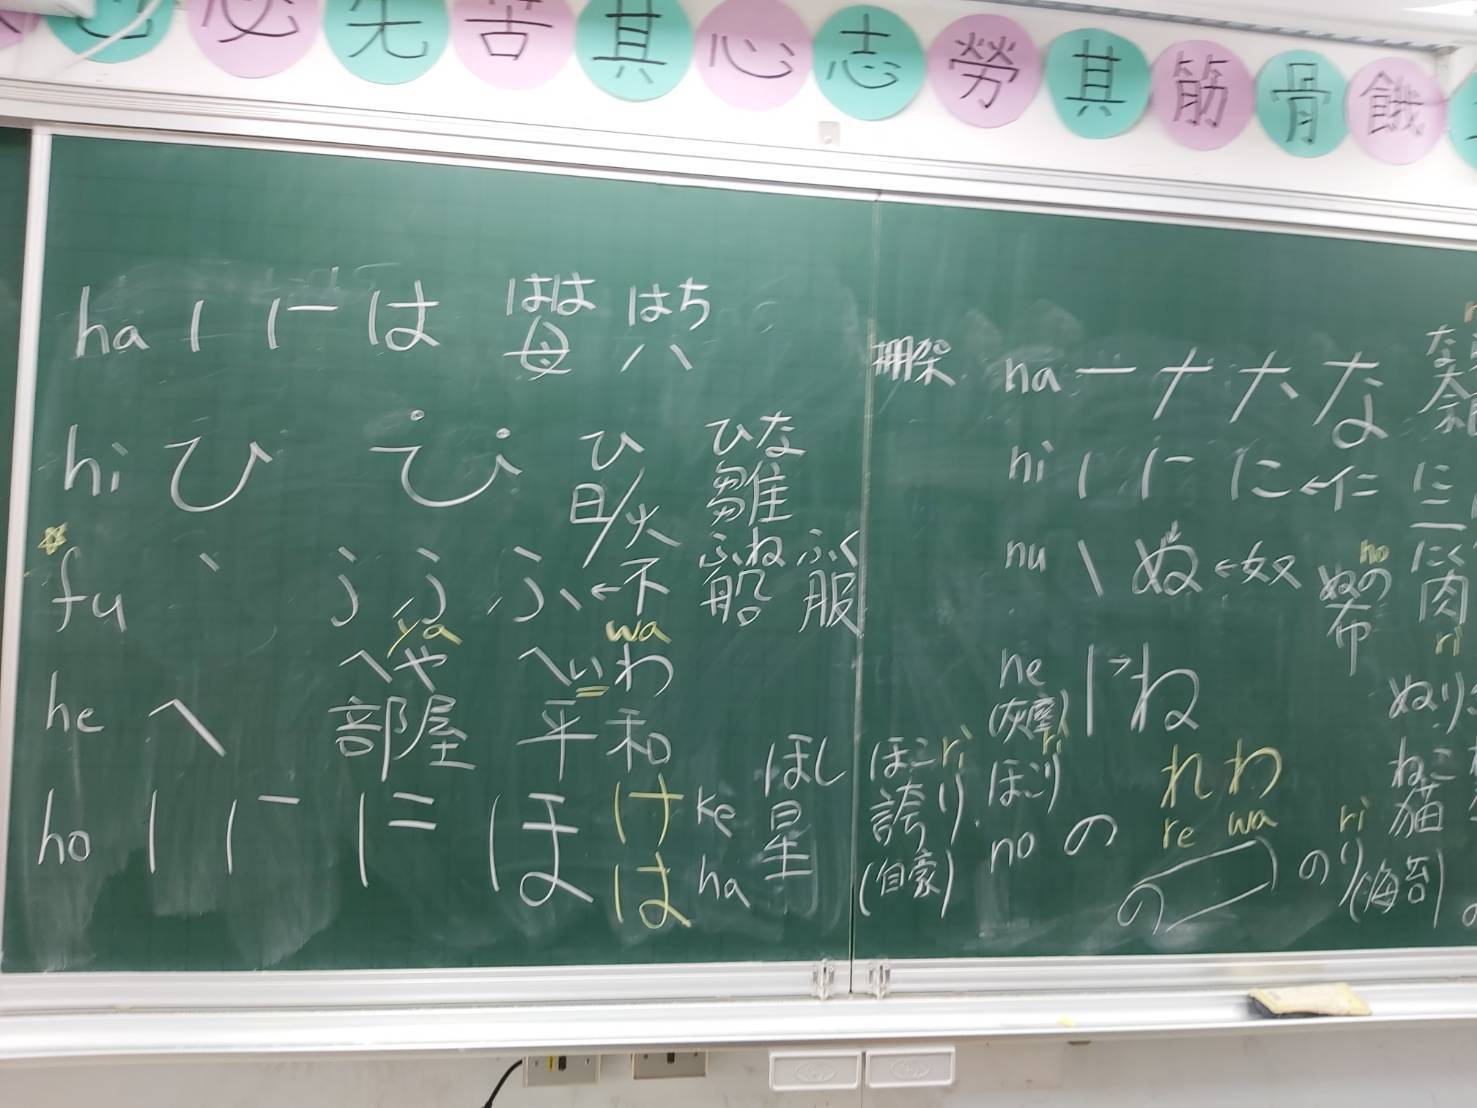 必先苦其心志勞其筋骨餓
ha は はは 母 はち 八
hi ひ ひ ひ 日/火 ひな 雛
fu ふ ふ←不 ふね 船 ふく 服
he へ へや ya 部屋 へいわ wa 平和
ho に ほ け ke は ha ほし 星
棚架
ほこり ri 誇り (自豪)
na 一 ナ な
ni に←仁
nu ぬ←奴 ぬの no 布 にく 肉
ne ね ねこ 猫
(灰塵) ほこり ri
れ re わ wa
no の の のり ri (海苔)